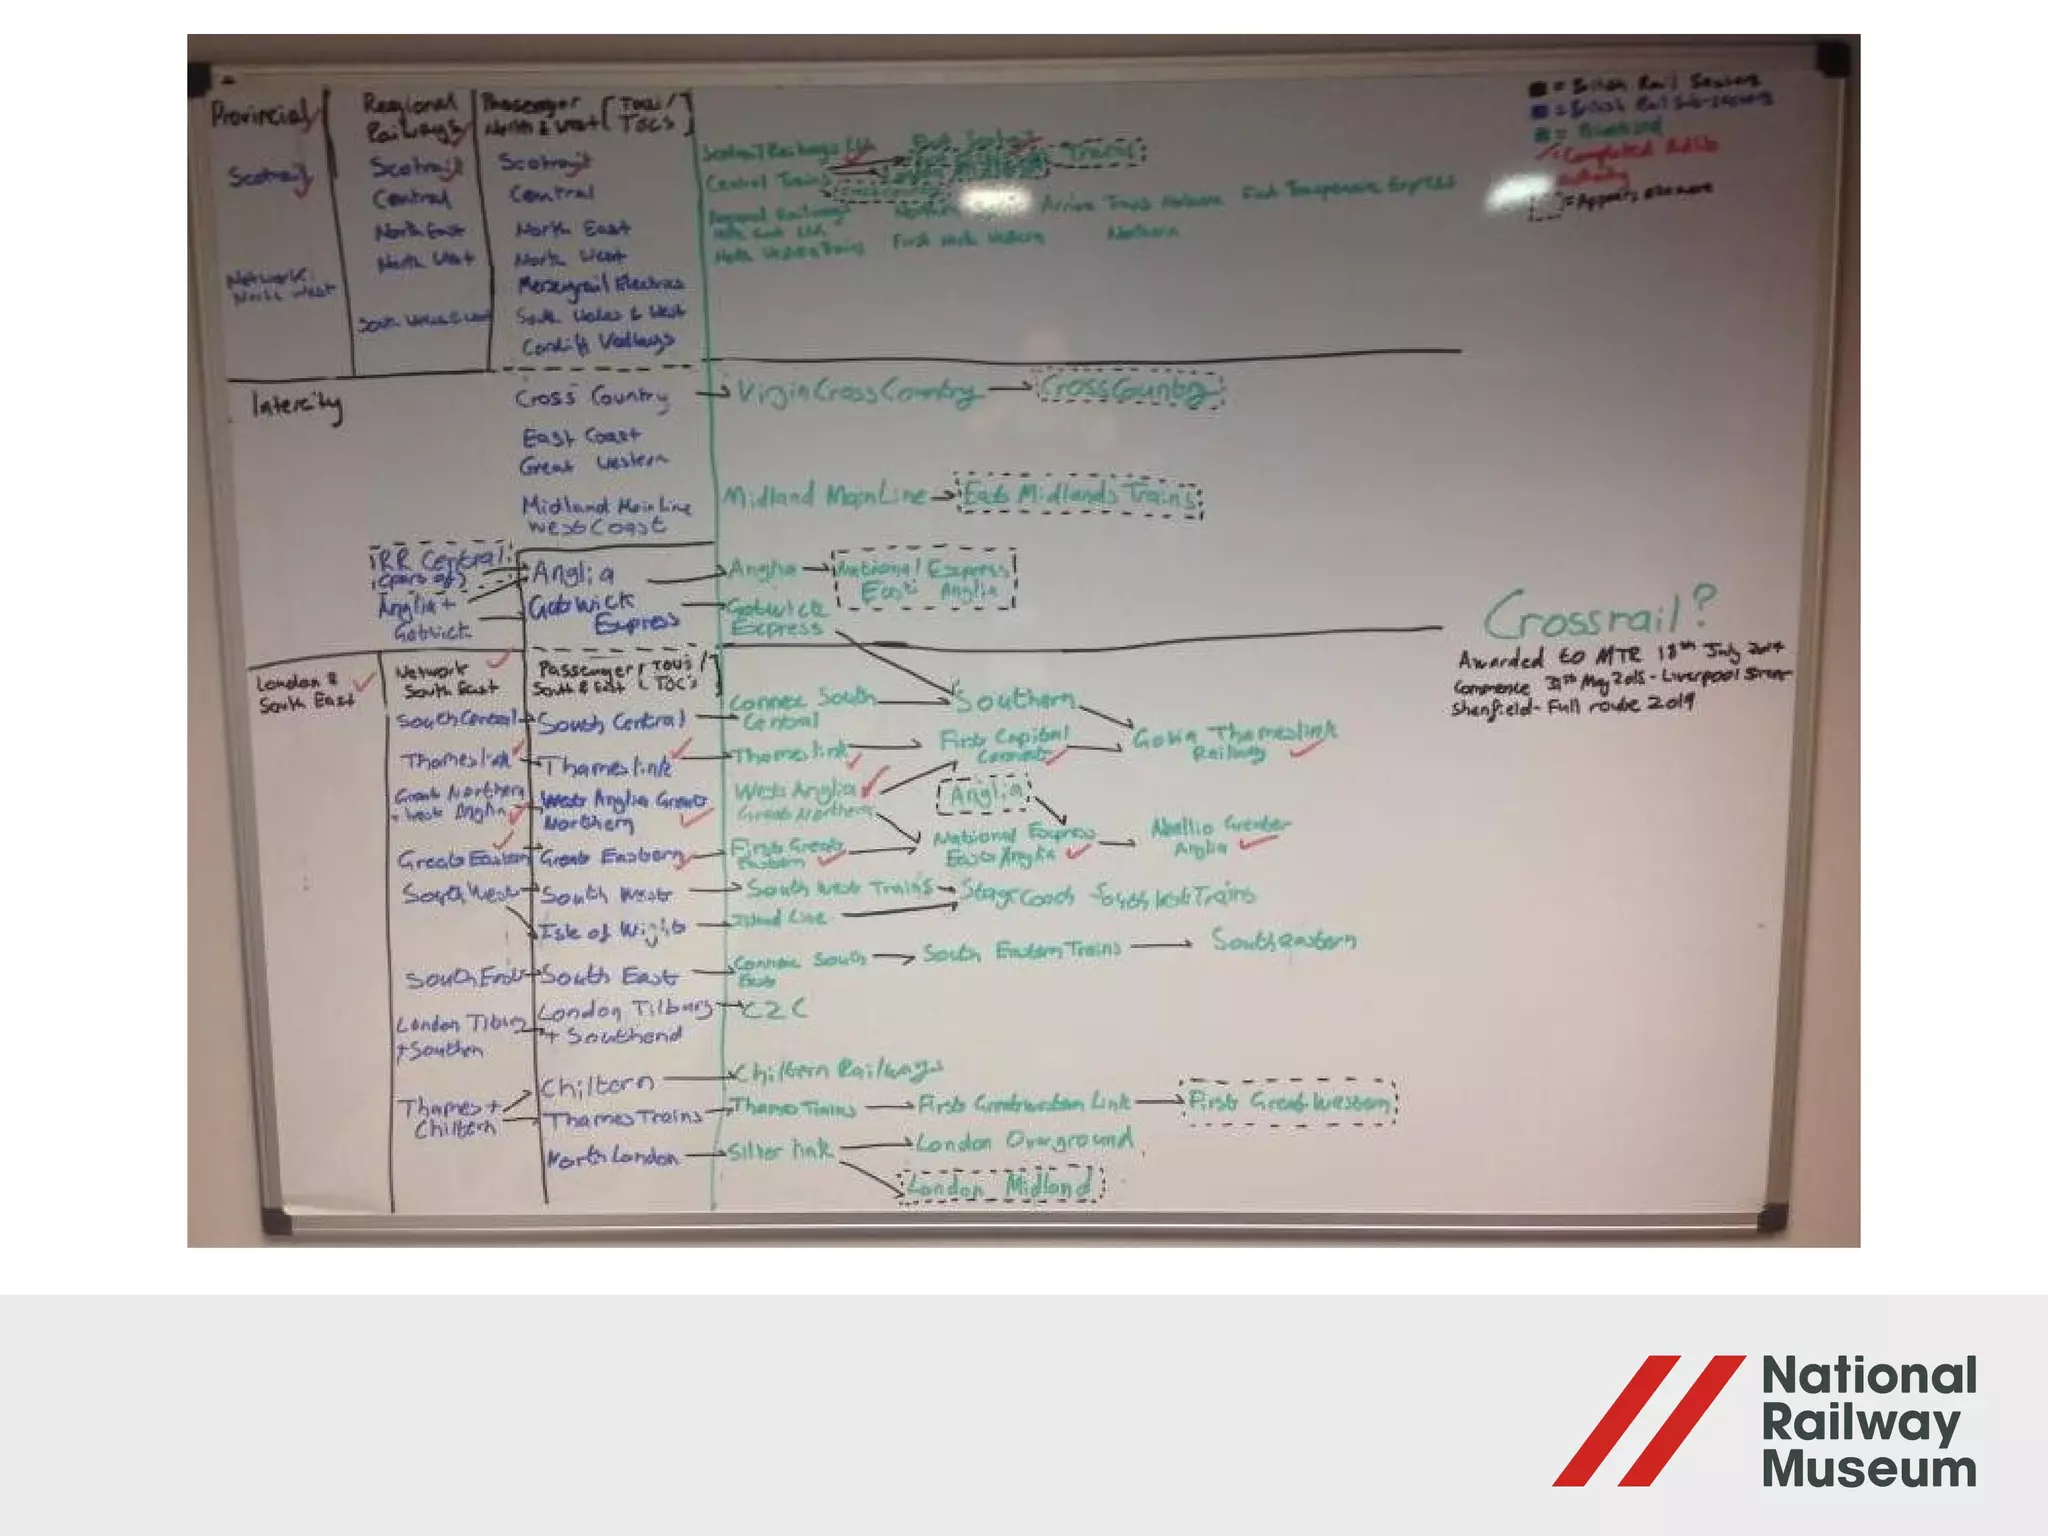 Provincial
Regional
Railways
Passenger
North & West
[TOUs/
TOCs]
Scotrail
Network
North West
Scotrail
Central
North East
North West
South Wales & West
Scotrail
Central
North East
North West
Merseyrail Electrics
South Wales & West
Cardiff Valleys
Scotrail Railways Ltd
Central Trains
Regional Railways
North East Ltd
North Western Trains
First North Western
Arriva Trains Northern
First Transpennine Express
Northern
= British Rail Sectors
= British Rail Sub-sectors
= Privatised
= Completed
= Appears elsewhere
Intercity
Cross Country
East Coast
Great Western
Midland Main Line
West Coast
Virgin Cross Country
CrossCountry
Midland MainLine
East Midlands Trains
RR Central
(part of)
Anglia +
Gatwick
Anglia
Gatwick
Express
Anglia
National Express
East Anglia
Gatwick
Express
Crossrail?
Awarded to MTR 18th July 2014
Commence 31st May 2015 - Liverpool Street
Shenfield - Full route 2019
London &
South East
Network
South East
Passenger
South & East
[TOUs/
TOC's]
South Central
South Central
Connex South
Central
Southern
Govia Thameslink
Railway
Thameslink
Thameslink
Thameslink
First Capital
Connect
Great Northern
+ West Anglia
West Anglia Great
Northern
West Anglia
Great Northern
Anglia
Great Eastern
Great Eastern
First Great
Eastern
National Express
East Anglia
Abellio Greater
Anglia
South West
South West
South West Trains
Stagecoach South West Trains
Isle of Wight
Island Line
South East
South East
Connex South
East
South Eastern Trains
Southeastern
London Tilbury
+ Southen
London Tilbury
+ Southend
C2C
Thames +
Chiltern
Chiltern
Chiltern Railways
Thames Trains
Thames Trains
First Great Western Link
First Great Western
North London
Silverlink
London Overground
London Midland
National
Railway
Museum